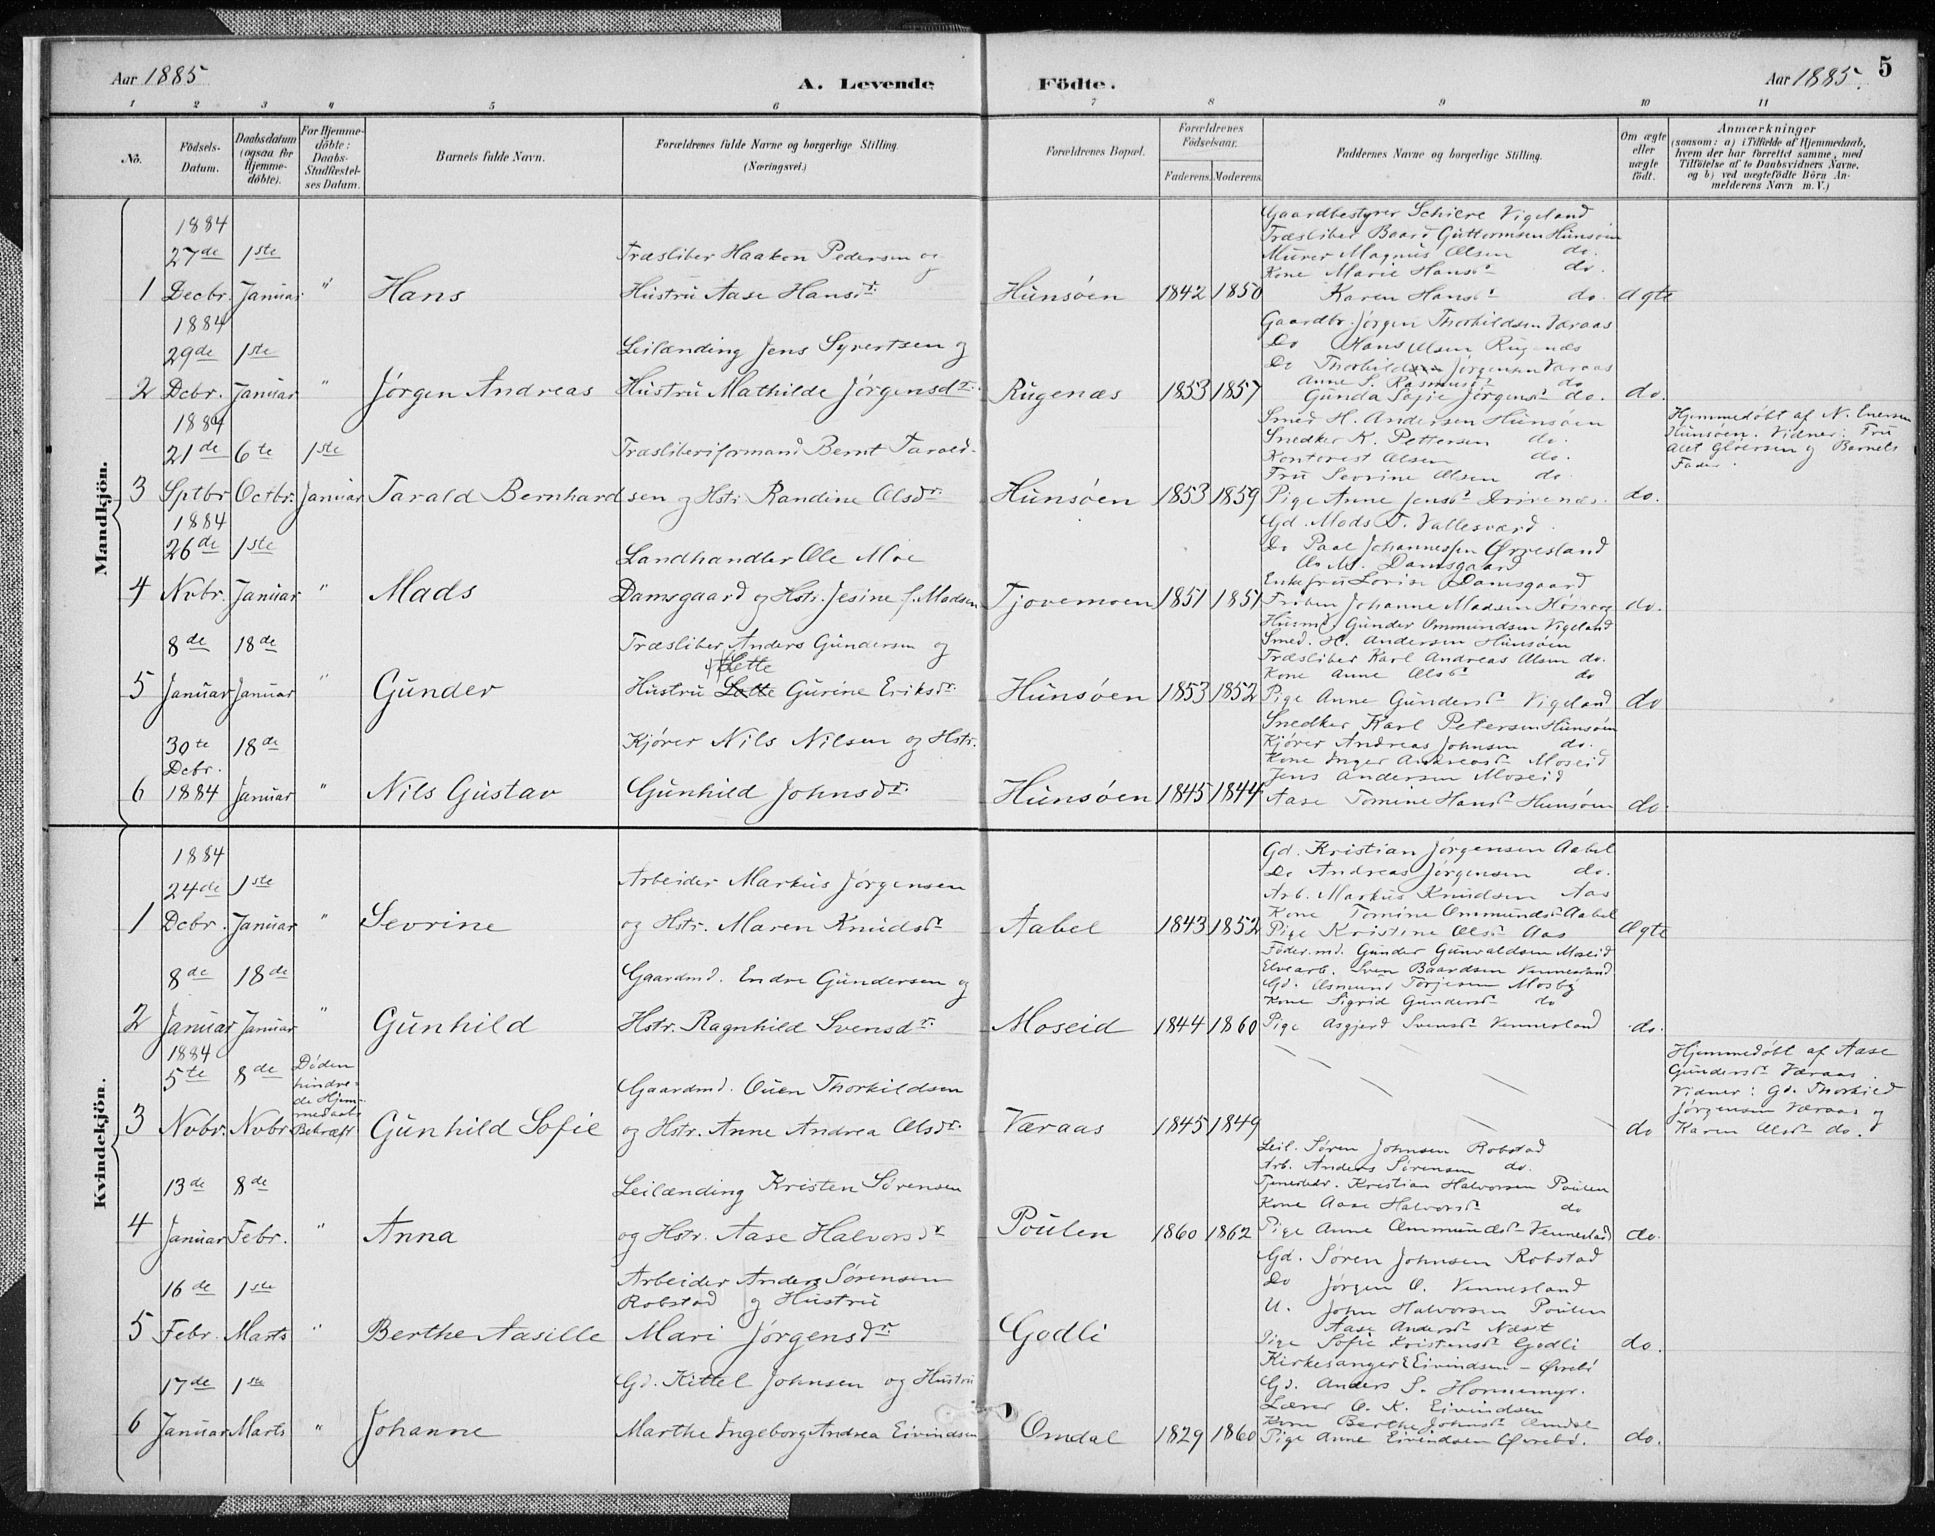 Aar 1885
A. Levende Födte.
Aar 1885.
5
1 2 3 4 5 6 7 8 9 10 11
No.
Födsels-Datum.
Daabsdatum (ogsaa for Hjemme-döbte).
For Hjemme-döbte: Daabs-Stadfæstel-ses Datum.
Barnets fulde Navn.
Forældrenes fulde Navne og borgerlige Stilling. (Næringsvei.)
Forældrenes Bopæl.
Forældrenes Födselsaar.
Faderens. Moderens.
Faddernes Navne og borgerlige Stilling.
Om ægte eller uægte födt.
Anmærkninger
(saasom: a) i Tilfælde af Hjemmedaab,
hvem der har forrettet samme, med
Tilföielse af to Daabsvidners Navne.
og b) ved uægtefödte Börn An-
melderens Navn m. V.)
Mandkjön.
1
1884
27de Decbr.
1ste Januar
"
Hans
Træsliber Haakon Pedersen og
Hustru Aase Hansdr.
Hunsøen
1842
1850
Gaardbestyrer Schiere Vigeland
Træsliber Baard Guttormsen Hunsøen
Murer Magnus Olsen do.
Kone Marie Hansdr do.
Karen Hansdr do.
Ægte
2
1884
29de Dcbr.
1ste Januar
"
Jørgen Andreas
Leilænding Jens Syvertsen og
Hustru Mathilde Jørgensdtr.
Rugenæs
1853
1857
Gaardbr. Jørgen Thorkildsen Væraas
Do Hans Olsen Rugenæs
Do Thorhild Jørgensen Væraas
Anne S. Rasmusdr do
Gunda Sofie Jørgensdr do.
do.
3
1884
21de Sptbr.
6te Octbr.
1ste Januar
Tarald Bernhard
Træsliberiformand Bernt Tarald-
sen og Hstr. Randine Olsdr.
Hunsøen
1853
1859
Smed H. Andersen Hunsøen
Snedker K. Pettersen do.
Kontorist Olsen do.
Fru Sevrine Olsen do.
Pige Anne Jensdr Drivenæs.
do.
Hjemmedøbt af N. Enersen
Hunsøen. Vidner: Fru
og Barnets
Fader.
4
1884
26de Nvbr.
1ste Januar
"
Mads
Landhandler Ole Moe
Damsgaard og Hstr. Jesine f. Madsen
Tjovemoen
1851
1851
Gd. Mads T. Vallesværd.
Do Paal Johannessen Øvresland
O. M. Damsgaard
Enkefru Lovise Damsgaard
Frøken Johanne Madsen
do.
5
8de Januar
18de Januar
"
Gunder
Træsliber Anders Gundersen og
Lette
Hustru Lotte Gurine Eriksdr.
Hunsøen
1853
1852
Husmd. Gunder Ommundsen Vigeland
Smed. H. Andersen Hunsøen
Træsliber Karl Andreas Olsen do.
Kone Anne Olsdr do
Pige Anne Gundersdr Vigeland
do
6
30te Dcbr. 1884
18de Januar
"
Nils Gustav
Kjører Nils Nilsen og Hstr.
Gunhild Johnsdr.
Hunsøen
1845
1844
Snedker Karl Petersen Hunsøen
Kjører Andreas Johnsen do.
Kone Inger Andreasdr Moseid
Jens Andersen Moseid
Aase Tomine Hansdr Hunsøen
do.
Kvindekjön.
1
1884
24de Dcbr.
1ste Januar
"
Sevrine
Arbeider Markus Jørgensen
og Hstr. Maren Knudsdr
Aabel
1843
1852
Gd. Kristian Jørgensen Aabel
Do Andreas Jørgensen do.
Arb. Markus Knudsen Aas
Kone Tomine Ommundsdr Aabel
Pige Kristine Olsdr Aas
Ægte
2
8de Januar
18de Januar
"
Gunhild
Gaardmd. Endre Gundersen og
Hstr. Ragnhild Svensdr.
Moseid
1844
1860
Føder.md. Gunder Gunvaldsen Moseid
Elvearb. Sven Baardsen Vennesland
Gd. Asmund Torjesen Mosby
Kone Sigrid Gundersdr do
Pige Asgjerd Svensdr Vennesland
do.
3
1884
5te Nvbr.
8de Nvbr.
Døden
hindre-
de Hjem-
medaabs
Bekræft
Gunhild Sofie
Gaardmd. Ouen Thorkildsen
og Hstr. Anne Andrea Olsdr.
Væraas
1845
1849
do
Hjemmedøbt af Aase
Gundersdr Væraas.
Vidner: Gd. Thorkild
Jørgensen Væraas og
Karen Olsdr do.
4
13de Januar
8de Febr.
"
Anna
Leilænding Kristen Sørensen
og Hstr. Aase Halvorsdr
Poulen
1860
1862
Leil. Søren Johnsen Robstad
Arb. Anders Sørensen do.
Tjenestedr. Kristian Halvorsen Poulen
Kone Aase Halvorsdr do
Pige Anne Ommundsdr Vennesland
do.
5
16de Febr.
1ste Marts
"
Berthe Aasille
Arbeider Anders Sørensen
Robstad og Hustru
Mari Jørgensdr.
Godli
Gd. Søren Johnsen Robstad
Do Jørgen O. Vennesland
U. John Halvorsen Poulen
Aase Andersdr Næset
Pige Sofie Kristensdr Godli
do.
6
17de Januar
1ste Marts
"
Johanne
Gd. Kittel Johnsen og Hustru
Marthe Ingeborg Andrea Eivindsen
Omdal
1829
1860
Kirkesanger E Eivindsen - Øvrebø
Gd. Anders S. Honnemyr.
Lærer O. K. Eivindsen
Kone Berthe Johnsdr Omdal
Pige Anne Eivindsen Øvrebø.
do.